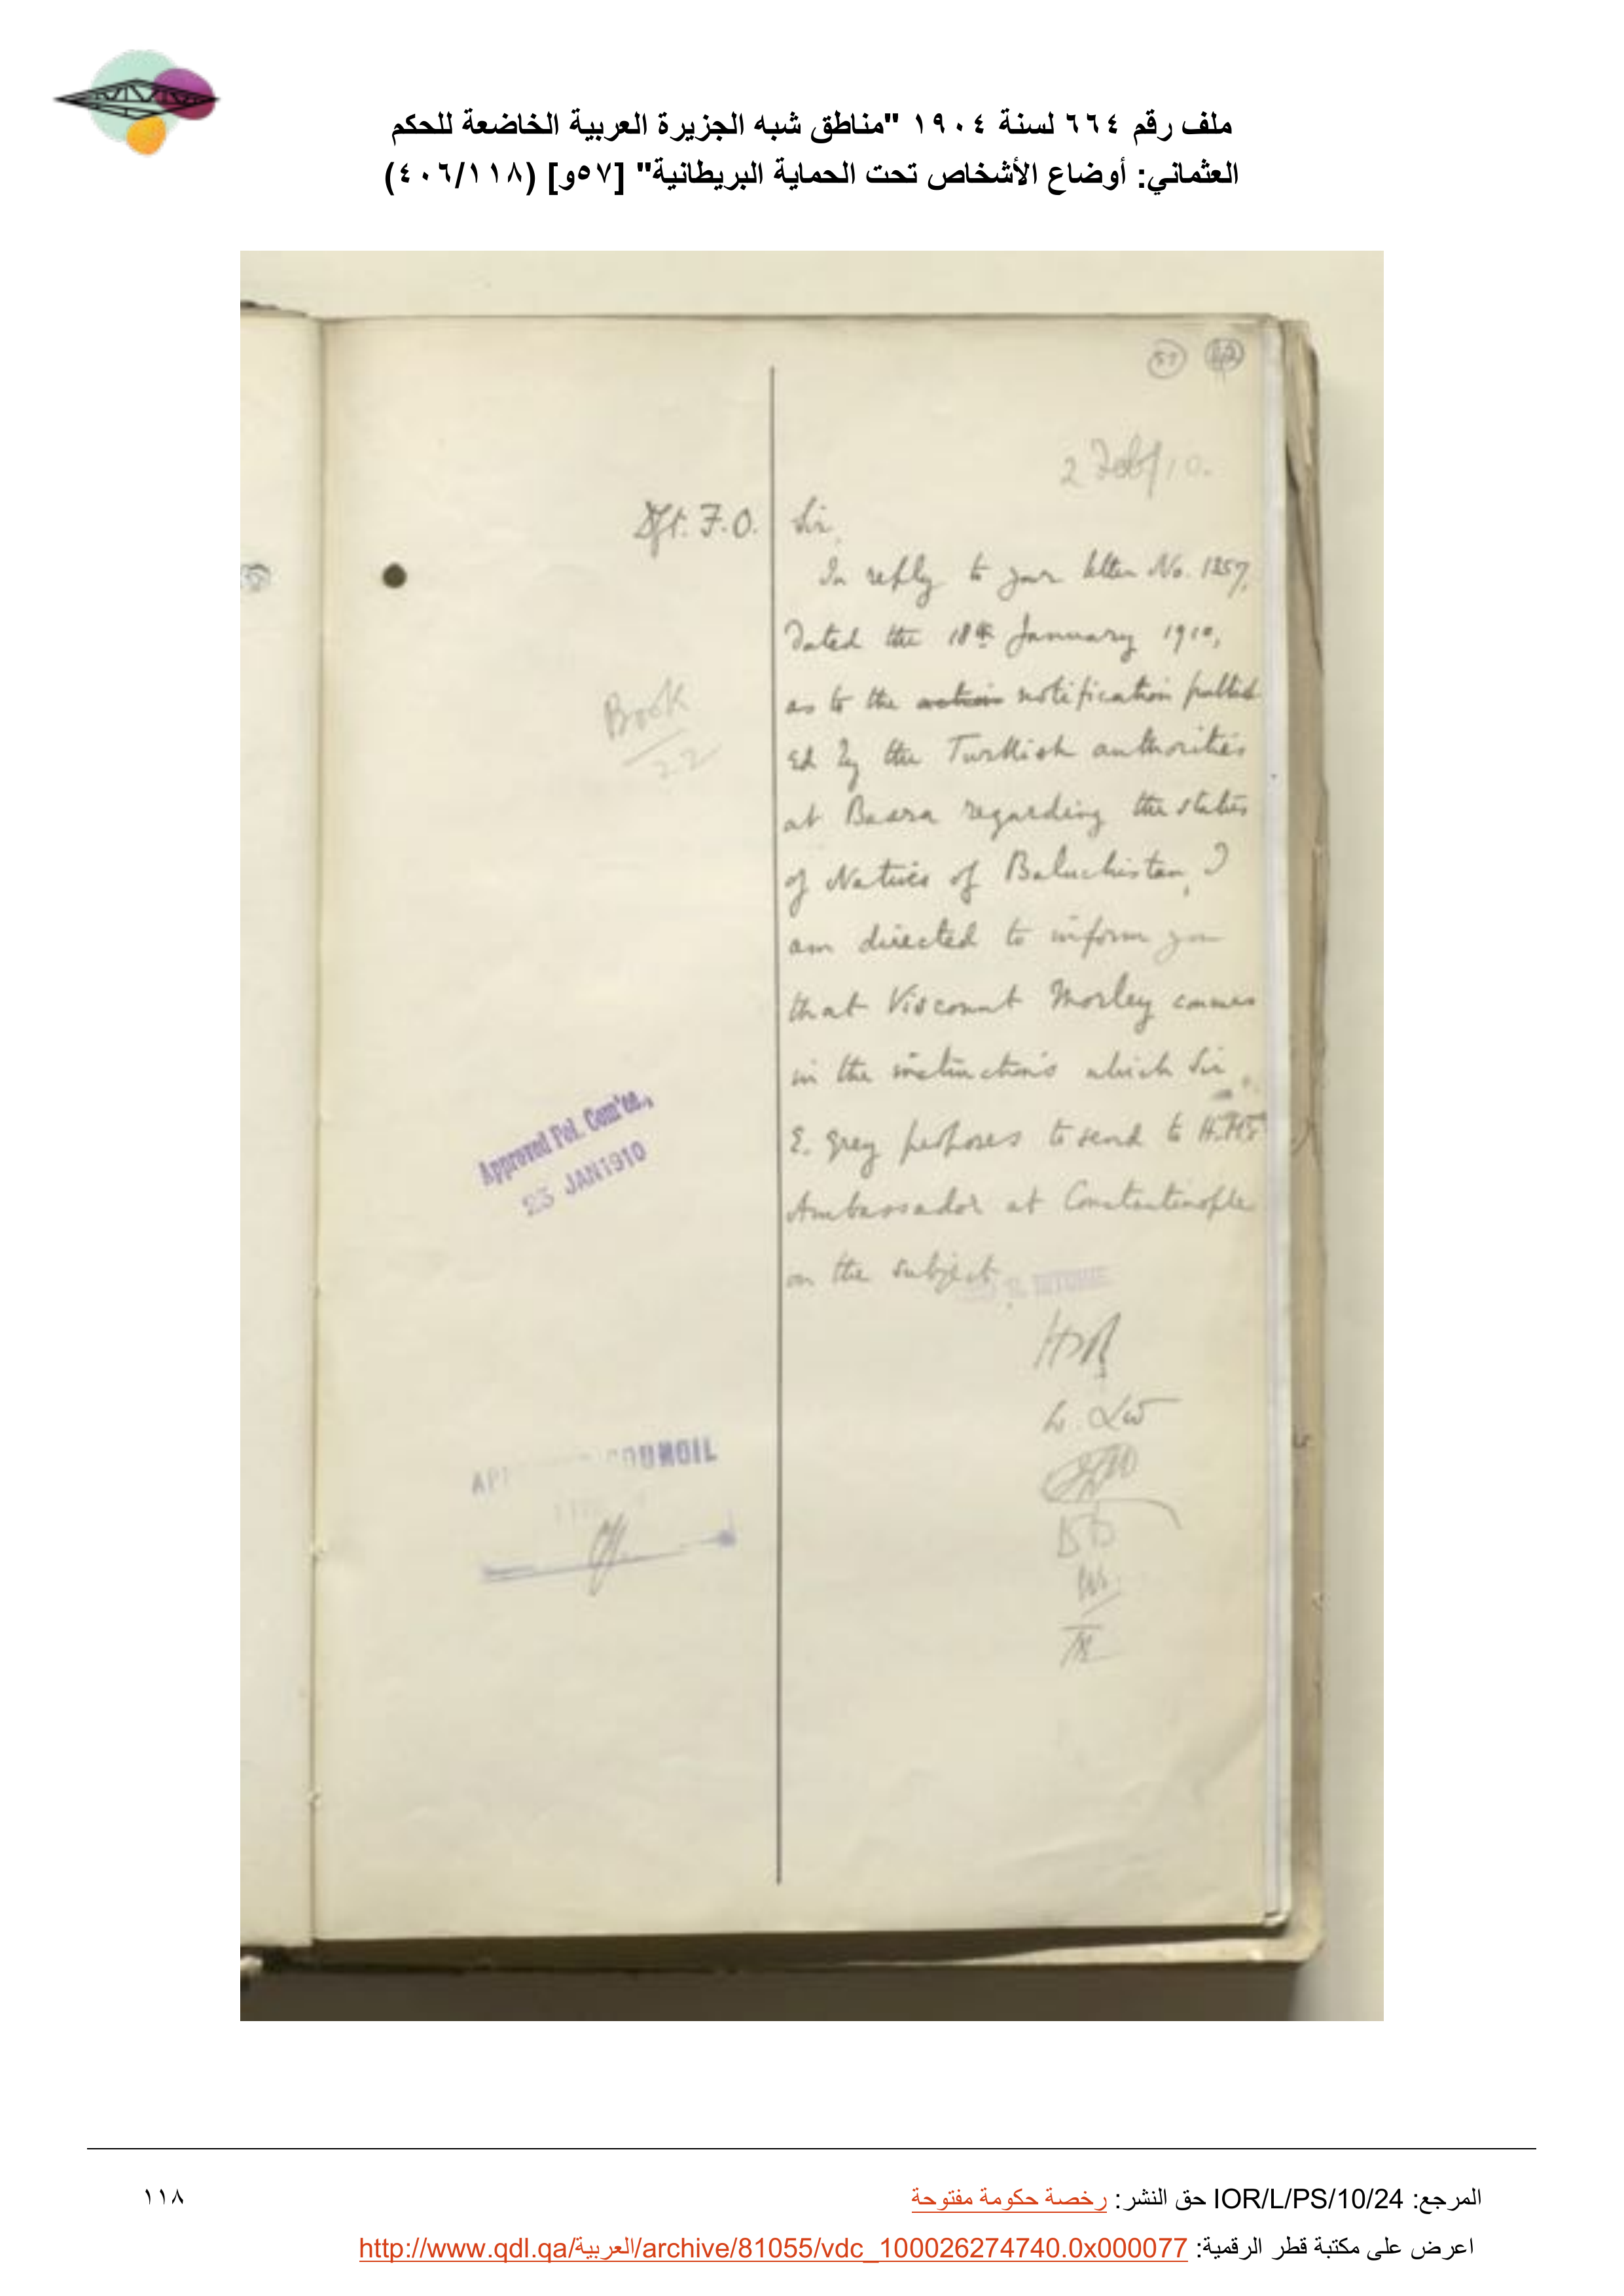 ملف رقم ٦٦٤ لسنة ١٩٠٤ "مناطق شبه الجزيرة العربية الخاضعة للحكم
العثماني: أوضاع الأشخاص تحت الحماية البريطانية" [٥٧و] (٤٠٦/١١٨)
57
2 Feb/10.
Dft. F.O.
Sir,
In reply to your letter No. 1257,
dated the 18th January 1910,
as to the action notification publish
ed by the Turkish authorities
at Basra regarding the status
of Natives of Baluchistan, I
am directed to inform you
that Viscount Morley concurs
in the instructions which Sir
E. Grey proposes to send to H.M's
Ambassador at Constantinople
on the subject.
Book
22
Approved Pol. Com'ee.,
25 JAN 1910
COUNCIL
RITCHIE
المرجع: IOR/L/PS/10/24 حق النشر: رخصة حكومة مفتوحة
١١٨
اعرض على مكتبة قطر الرقمية: http://www.qdl.qa/العربية/archive/81055/vdc_100026274740.0x000077